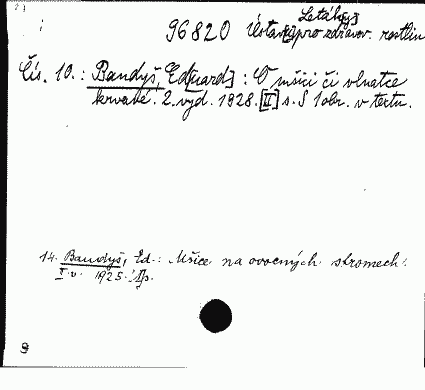 Letáky
96820 Ústavů pro zdravov. rostlin
Čís. 10.: Bandyš, Ed[uard]: O mšici či vlnatce
krvavé. 2. vyd. 1928. [II] s. S 1 obr. v textu.
14. Bandyš, Ed.: Mšice na ovocných stromech.
I. v. 1925.